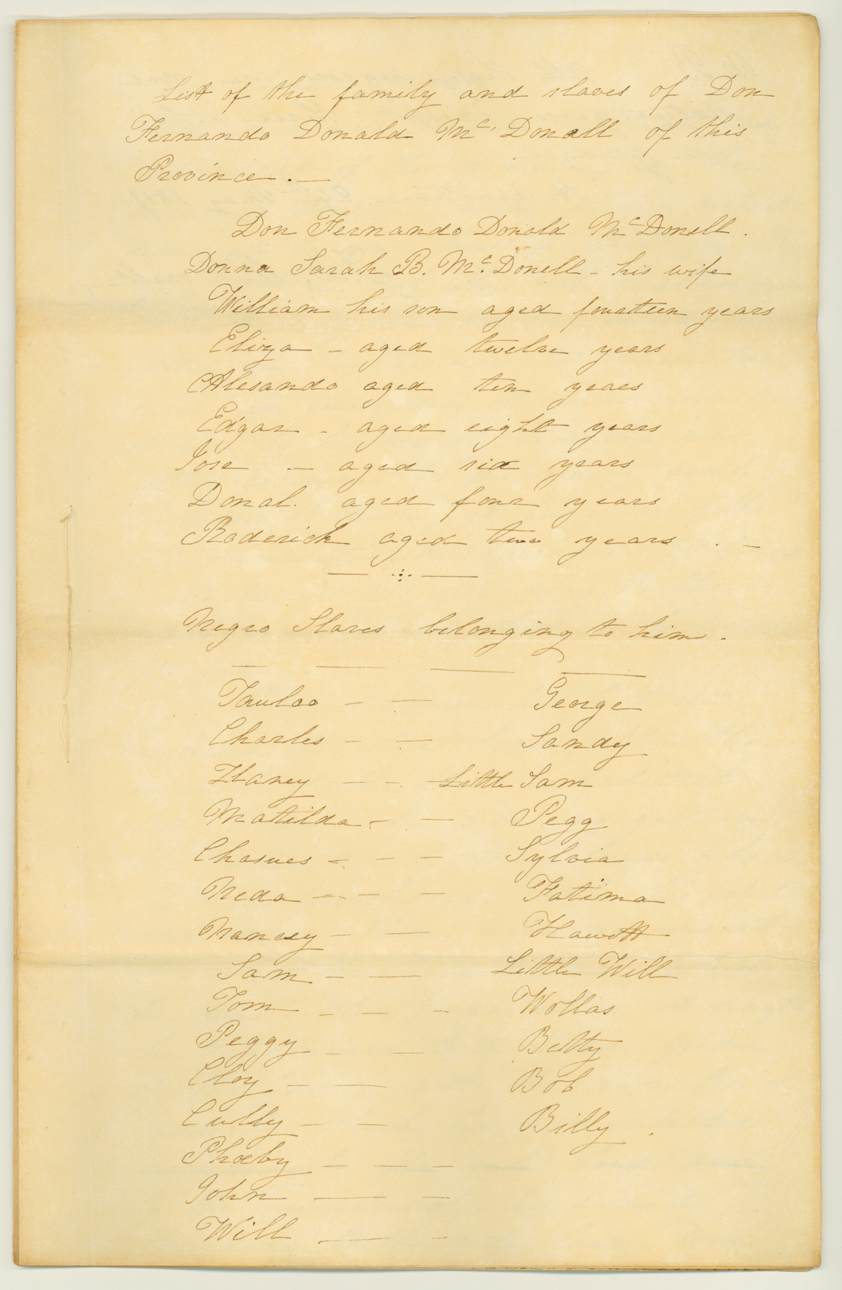 List of the family and slaves of Don
Fernando Donald Mc. Donell of this
Province. —
Don Fernando Donald Mc Donell.
Donna Sarah B. Mc. Donell - his wife
William his son aged fourteen years
Eliza - aged twelve years
Alesando aged ten years
Edgar - aged eight years
Jose - aged six years
Donal. aged four years
Roderick aged two years . —
Negro Slaves belonging to him.
Paulas - - George
Charles - - Sandy
Haney - - Little Sam
Matilda - - Pegg
- - - Sylvia
Neda - - - Fatima
Nancey - - Hawott
Sam - - Little Will
Tom - - - Wollas
Peggy - - Betty
Cloy - - Bob
Cully - - Billy .
Phoeby - - -
John - -
Will - -